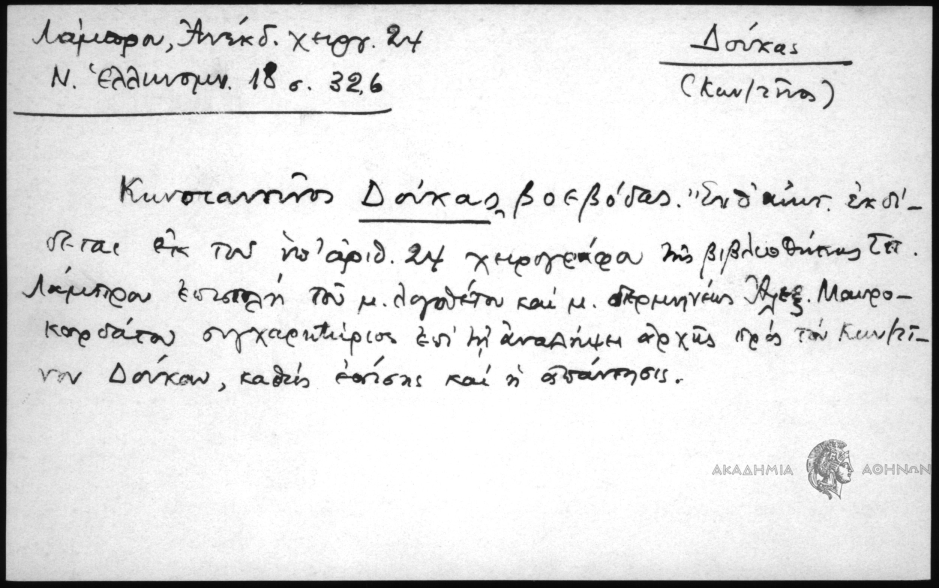 Λάμπρου, Ἀνέκδ. χειργ. 24
Ν. Ἑλληνομν. 18 σ. 326
Δούκας
(Κων/τῖνος)
Κωνσταντῖνος Δούκας βοεβόδας. ἐκδί-
δεται ἐκ τοῦ ὑπ' ἀριθ. 24 χειρογράφου τῆς βιβλιοθήκης Σπ.
Λάμπρου ἐπιστολή τοῦ μ. λογοθέτου καί μ. διερμηνέως Ἀλεξ. Μαυρο-
κορδάτου συγχαρητήριος ἐπί τῇ ἀναλήψει ἀρχῆς πρός τόν Κων/τῖ-
νον Δούκαν, καθώς ἐπίσης καί ἡ ἀπάντησις.
ΑΚΑΔΗΜΙΑ ΑΘΗΝΩΝ